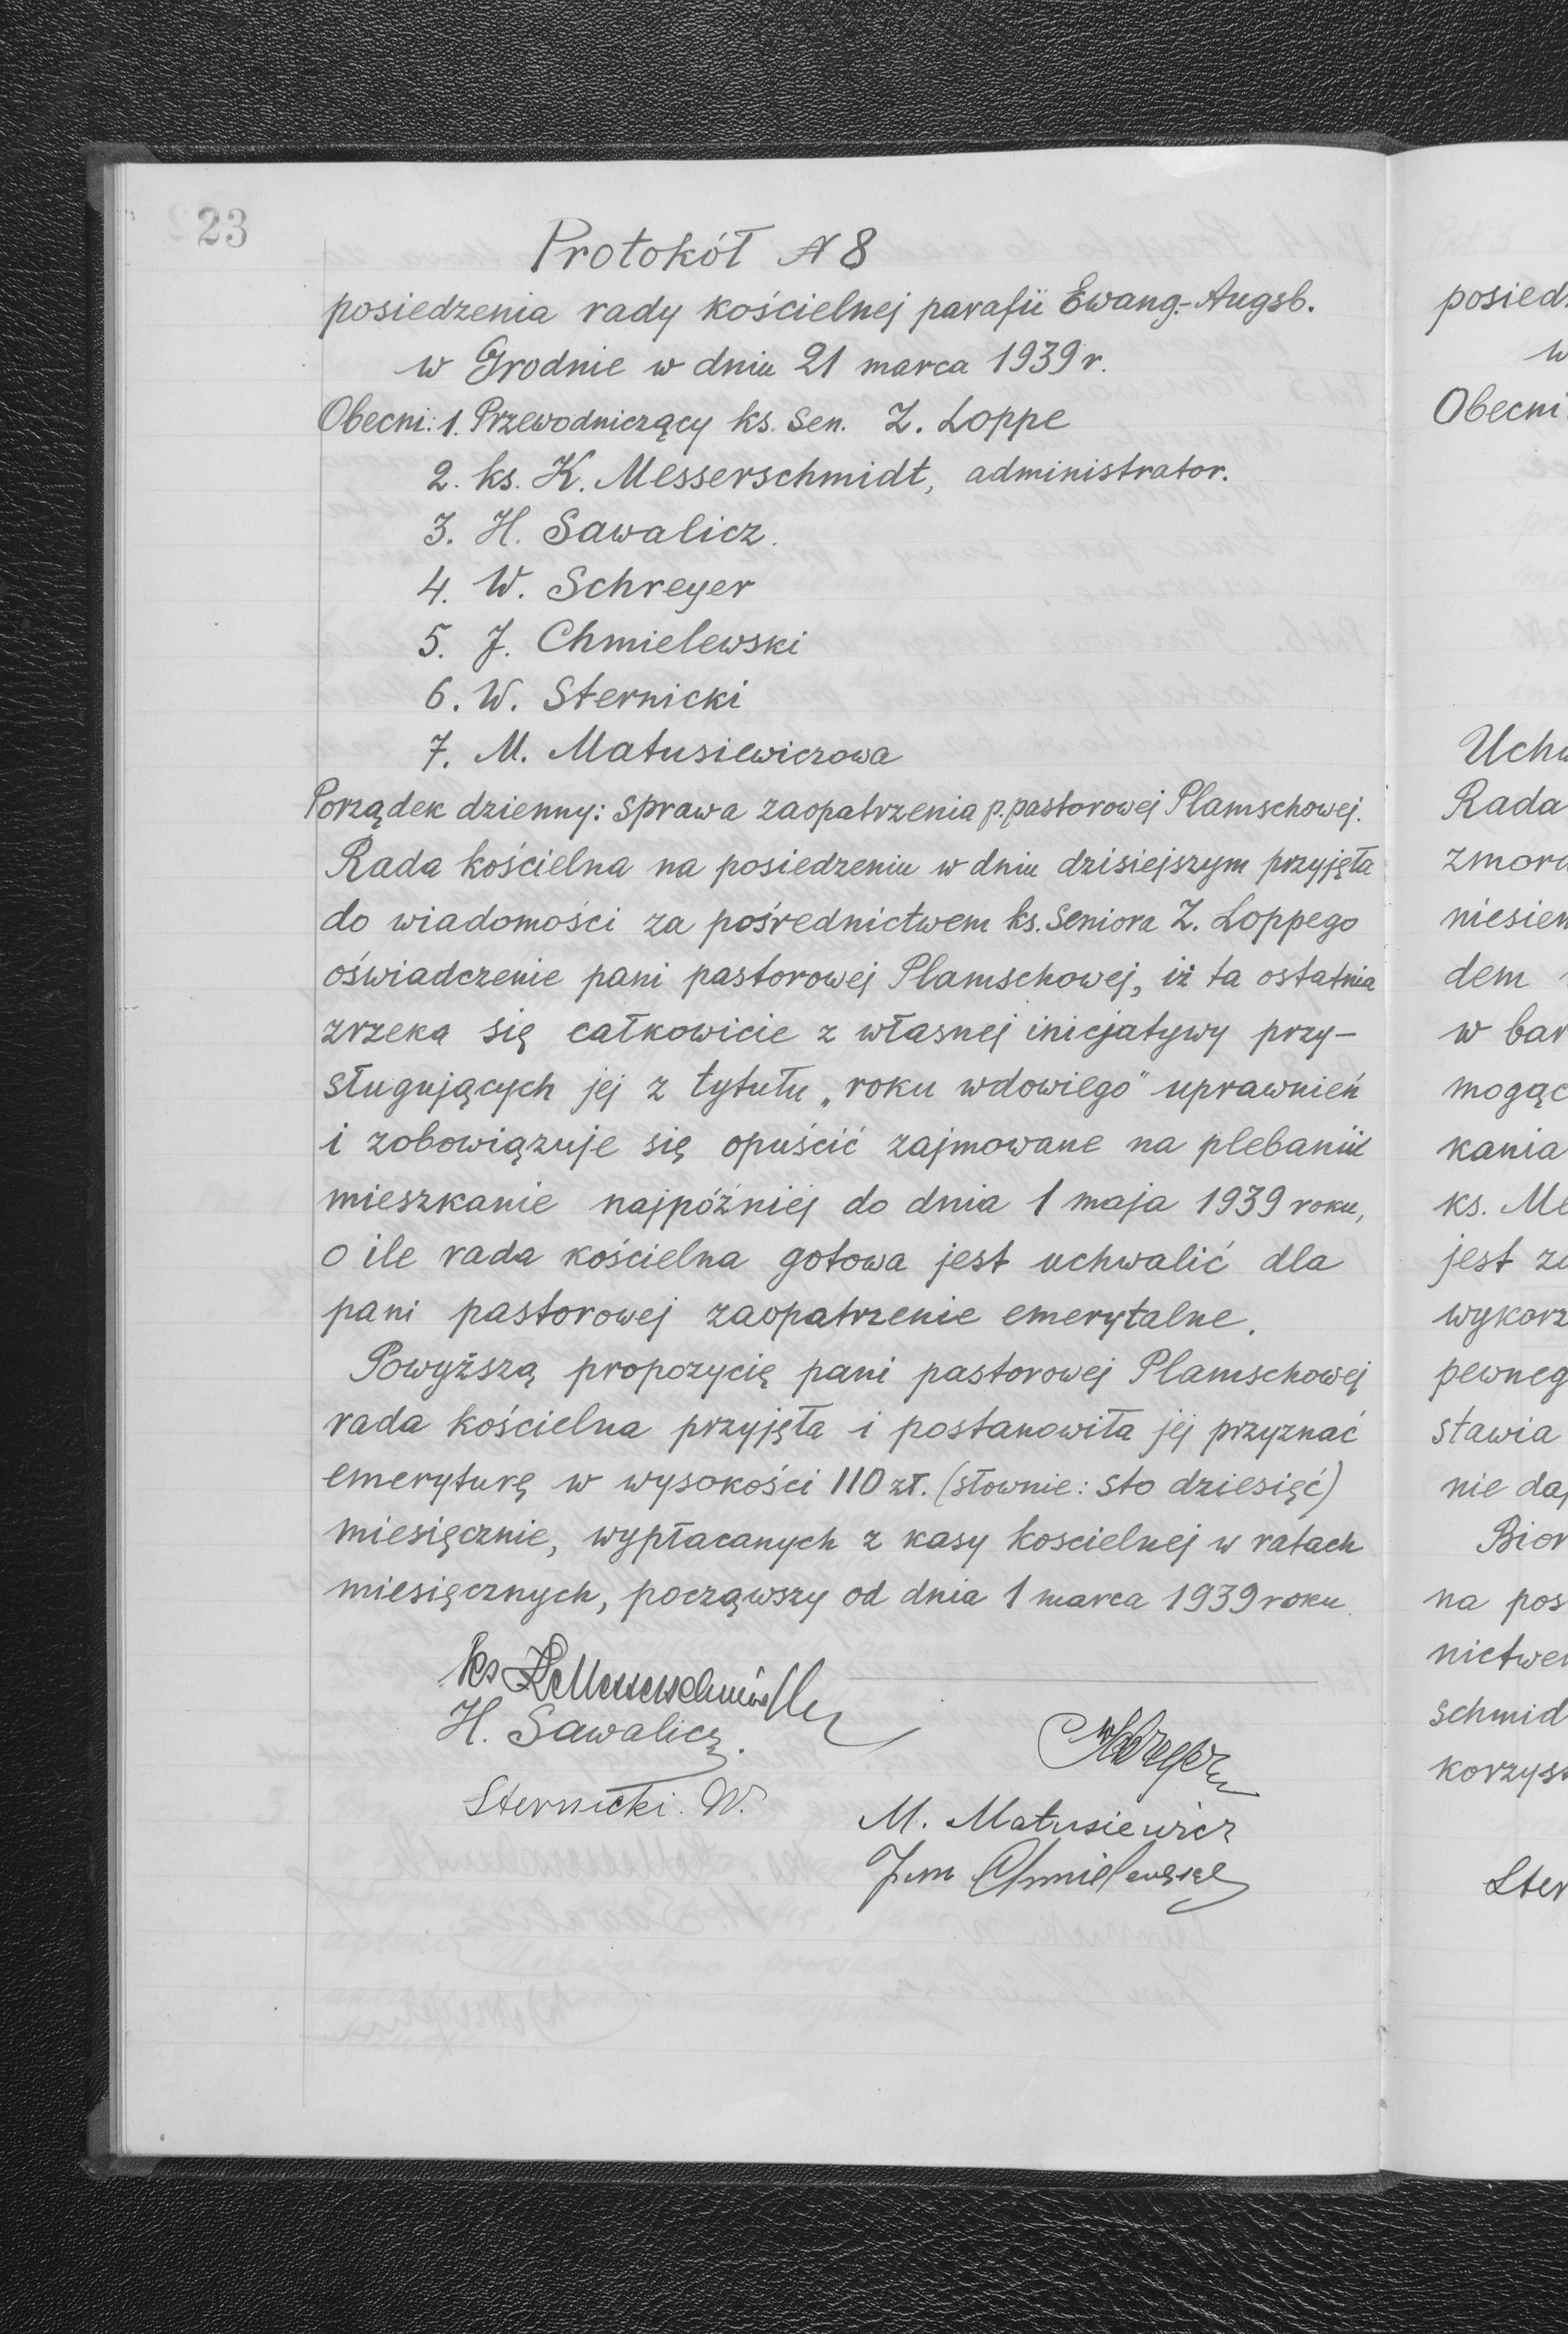 23
Protokół N 8
posiedzenia rady kościelnej parafii Ewang.-Augsb.
w Grodnie w dniu 21 marca 1939 r.
Obecni: 1. Przewodniczący ks. Sen. Z. Loppe
2. ks. K. Messerschmidt, administrator.
3. H. Sawalicz.
4. W. Schreyer
5. J. Chmielewski
6. W. Sternicki
7. M. Matusiewiczowa
Porządek dzienny: sprawa zaopatrzenia p. pastorowej Plamschowej.
Rada kościelna na posiedzeniu w dniu dzisiejszym przyjęła
do wiadomości za pośrednictwem ks. Seniora Z. Loppego
oświadczenie pani pastorowej Plamschowej, iż ta ostatnia
zrzeka się całkowicie z własnej inicjatywy przy-
sługujących jej z tytułu „roku wdowiego" uprawnień
i zobowiązuje się opuścić zajmowane na plebanii
mieszkanie najpóźniej do dnia 1 maja 1939 roku,
o ile rada kościelna gotowa jest uchwalić dla
pani pastorowej zaopatrzenie emerytalne.
Powyższą propozycię pani pastorowej Plamschowej
rada kościelna przyjęła i postanowiła jej przyznać
emeryturę w wysokości 110 zł. (słownie: sto dziesięć)
miesięcznie, wypłacanych z kasy koscielnej w ratach
miesięcznych, począwszy od dnia 1 marca 1939 roku.
ks K Messerschmidt
H. Sawalicz.
W Schreyer
Sternicki. W.
M. Matusiewicz
Jan Chmielewski
posied
w
Obecni
Uchw
Rada
zmora
niesien
dem
w bar
mogąc
kania
ks. Me
jest za
wykorz
pewneg
stawia
nie daj
Bior
na pos
nictwem
schmid
korzyst
Ster